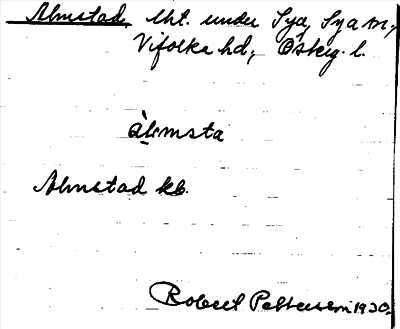 Almstad, lht. under Sya, Sya sn,
Vifolka hd, Östg. l.
àlmsta
Almstad kb.
Robert Pettersson 1930.